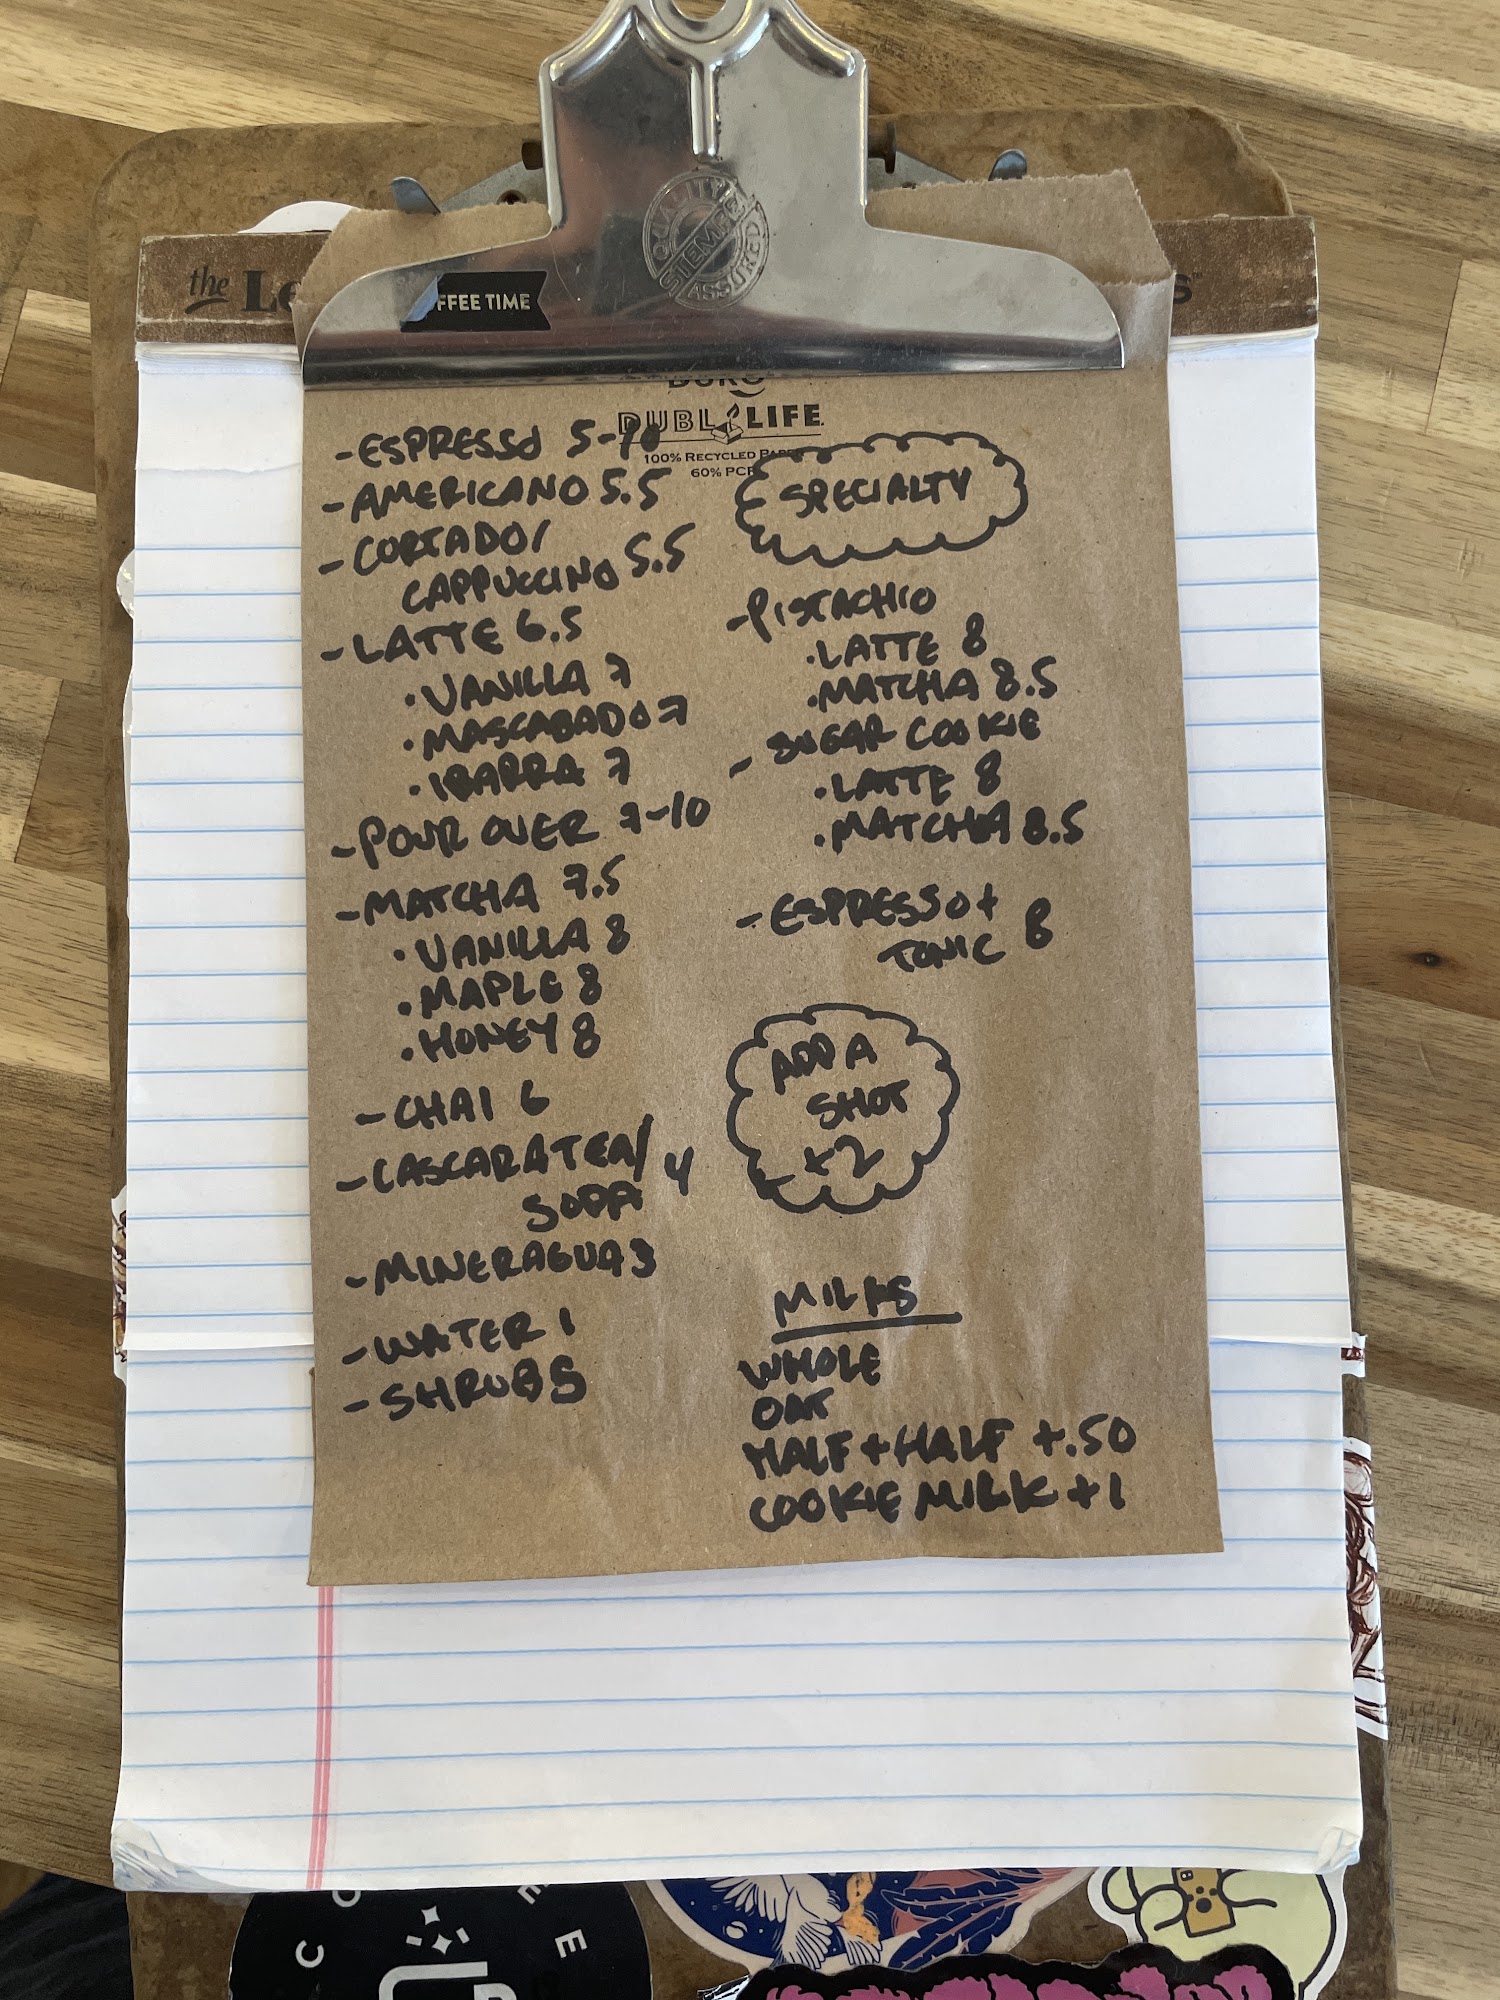 QUALITY
STEMPEL
ASSURED
FFEE TIME
the Le
s
DURO
DUBL LIFE
100% RECYCLED PAPER
60% PCR
-ESPRESSO 5-10
-AMERICANO 5.5
-CORTADO/
CAPPUCCINO 5.5
-LATTE 6.5
•VANILLA 7
•MASCABADO 7
•IBARRA 7
-POUR OVER 7-10
-MATCHA 7.5
•VANILLA 8
•MAPLE 8
•HONEY 8
-CHAI 6
-CASCARA TEA/ 4
SODA
-MINERAGUA 3
-WATER 1
-SHRUB 5
SPECIALTY
-PISTACHIO
•LATTE 8
•MATCHA 8.5
-SUGAR COOKIE
•LATTE 8
•MATCHA 8.5
-ESPRESSO+
TONIC 8
ADD A
SHOT
+2
MILKS
WHOLE
OAT
HALF+HALF +.50
COOKIE MILK +1